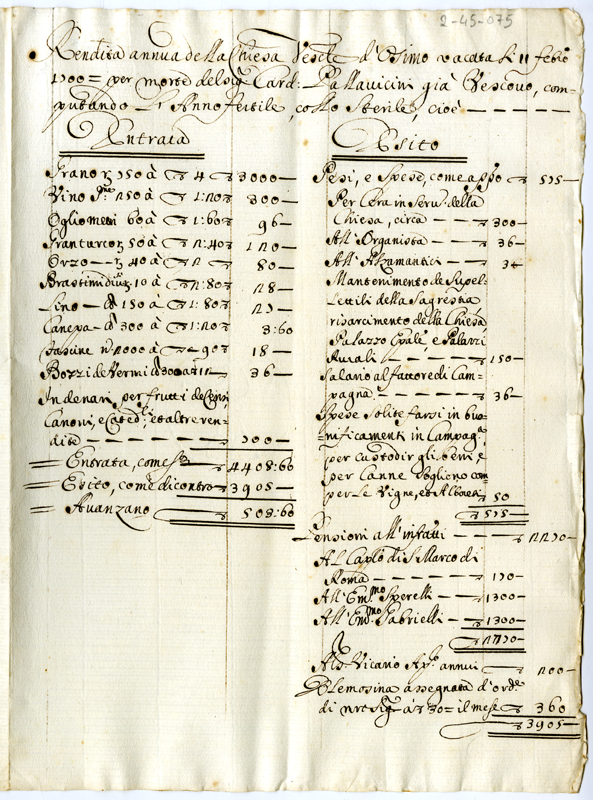 2-45-075
Rendita annua della Chiesa Vesc.le d'Osimo vacata li 11 febro
1700 = per morte del sig. Card: Pallavicini già Vescovo, com-
putando l'Anno fertile, collo sterile, cioè
Entrata
Grano 750 à 4 3000
Vino 250 à 1:20 300
Oglio 60 à 1:60 96
Granturco 50 à 2:40 120
Orzo 40 à 2 80
10 à 2:80 28
Lino 150 à 1:80
Canepa 300 à 1:20 3:60
2000 à 90 18
Bozzi de Vermi 36
In denari, per frutti de Censi
Canoni, et altre ren-
dite
Entrata, come sª 4408:60
Esito, come di contro 3905
Avanzano 503:60
Esito
Pesi, e Spese, come appo 515
Per Cera in serv. della
Chiesa, circa 300
All' Organista 36
All' Alzamantici 3
Mantenimento de Supel-
lettili della Sagrestia
risarcimento della Chiesa
Palazzo e Palazzi
Rurali 150
Salario al fattore di Cam-
pagna 36
Spese solite farsi in bo-
nificamenti in Campagª
per custodir gli beni e
per Canne
per le Vigne, et 50
515
Pensioni all' infatti
Al Caplo di S. Marco di
Roma
All' Em.mo Sperelli 1300
All' Em.mo Gabrielli 1300
Vicario Ap. annui 200
Elemosina assegnata d'ord.e
di à 30 = il mese 360
3905